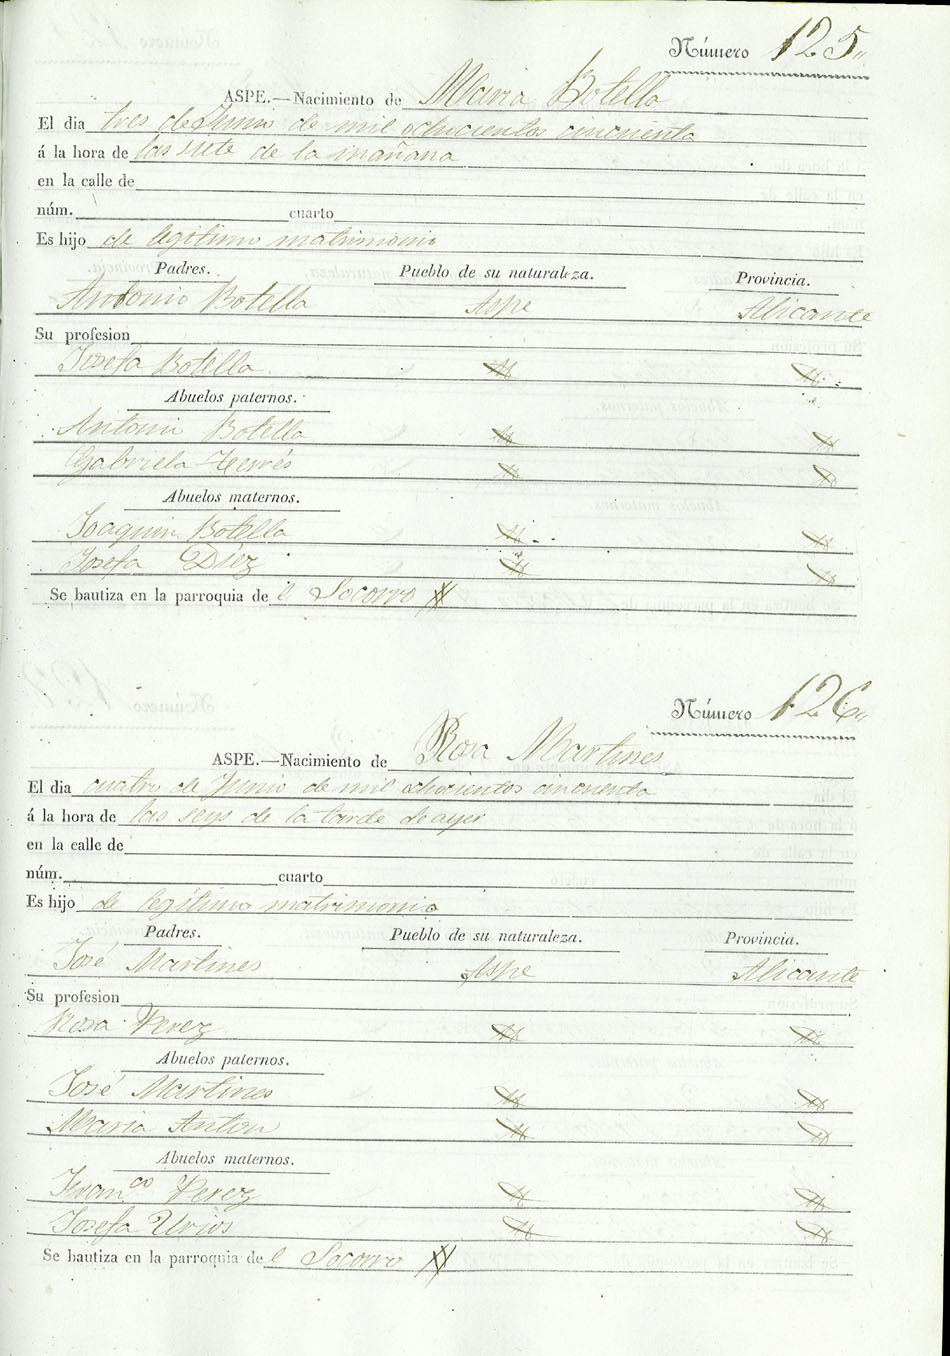 Número 125„
ASPE.—Nacimiento de Maria Botella
El dia tres de Junio de mil ochocientos cincuenta
á la hora de las siete de la mañana
en la calle de
núm. cuarto
Es hijo de legitimo matrimonio
Padres. Pueblo de su naturaleza. Provincia.
Antonio Botella Aspe Alicante
Su profesion
Josefa Botella
Abuelos paternos.
Antonio Botella
Gabriela
Abuelos maternos.
Joaquin Botella
Josefa Diez
Se bautiza en la parroquia de el Socorro
Número 126„
ASPE.—Nacimiento de Rosa Martines
El dia cuatro de Junio de mil ochocientos cincuenta
á la hora de las seys de la tarde de ayer
en la calle de
núm. cuarto
Es hijo de legitimo matrimonio
Padres. Pueblo de su naturaleza. Provincia.
José Martines Aspe Alicante
Su profesion
Rosa Perez
Abuelos paternos.
José Martines
Maria Anton
Abuelos maternos.
Franco Perez
Josefa Urios
Se bautiza en la parroquia de el Socorro